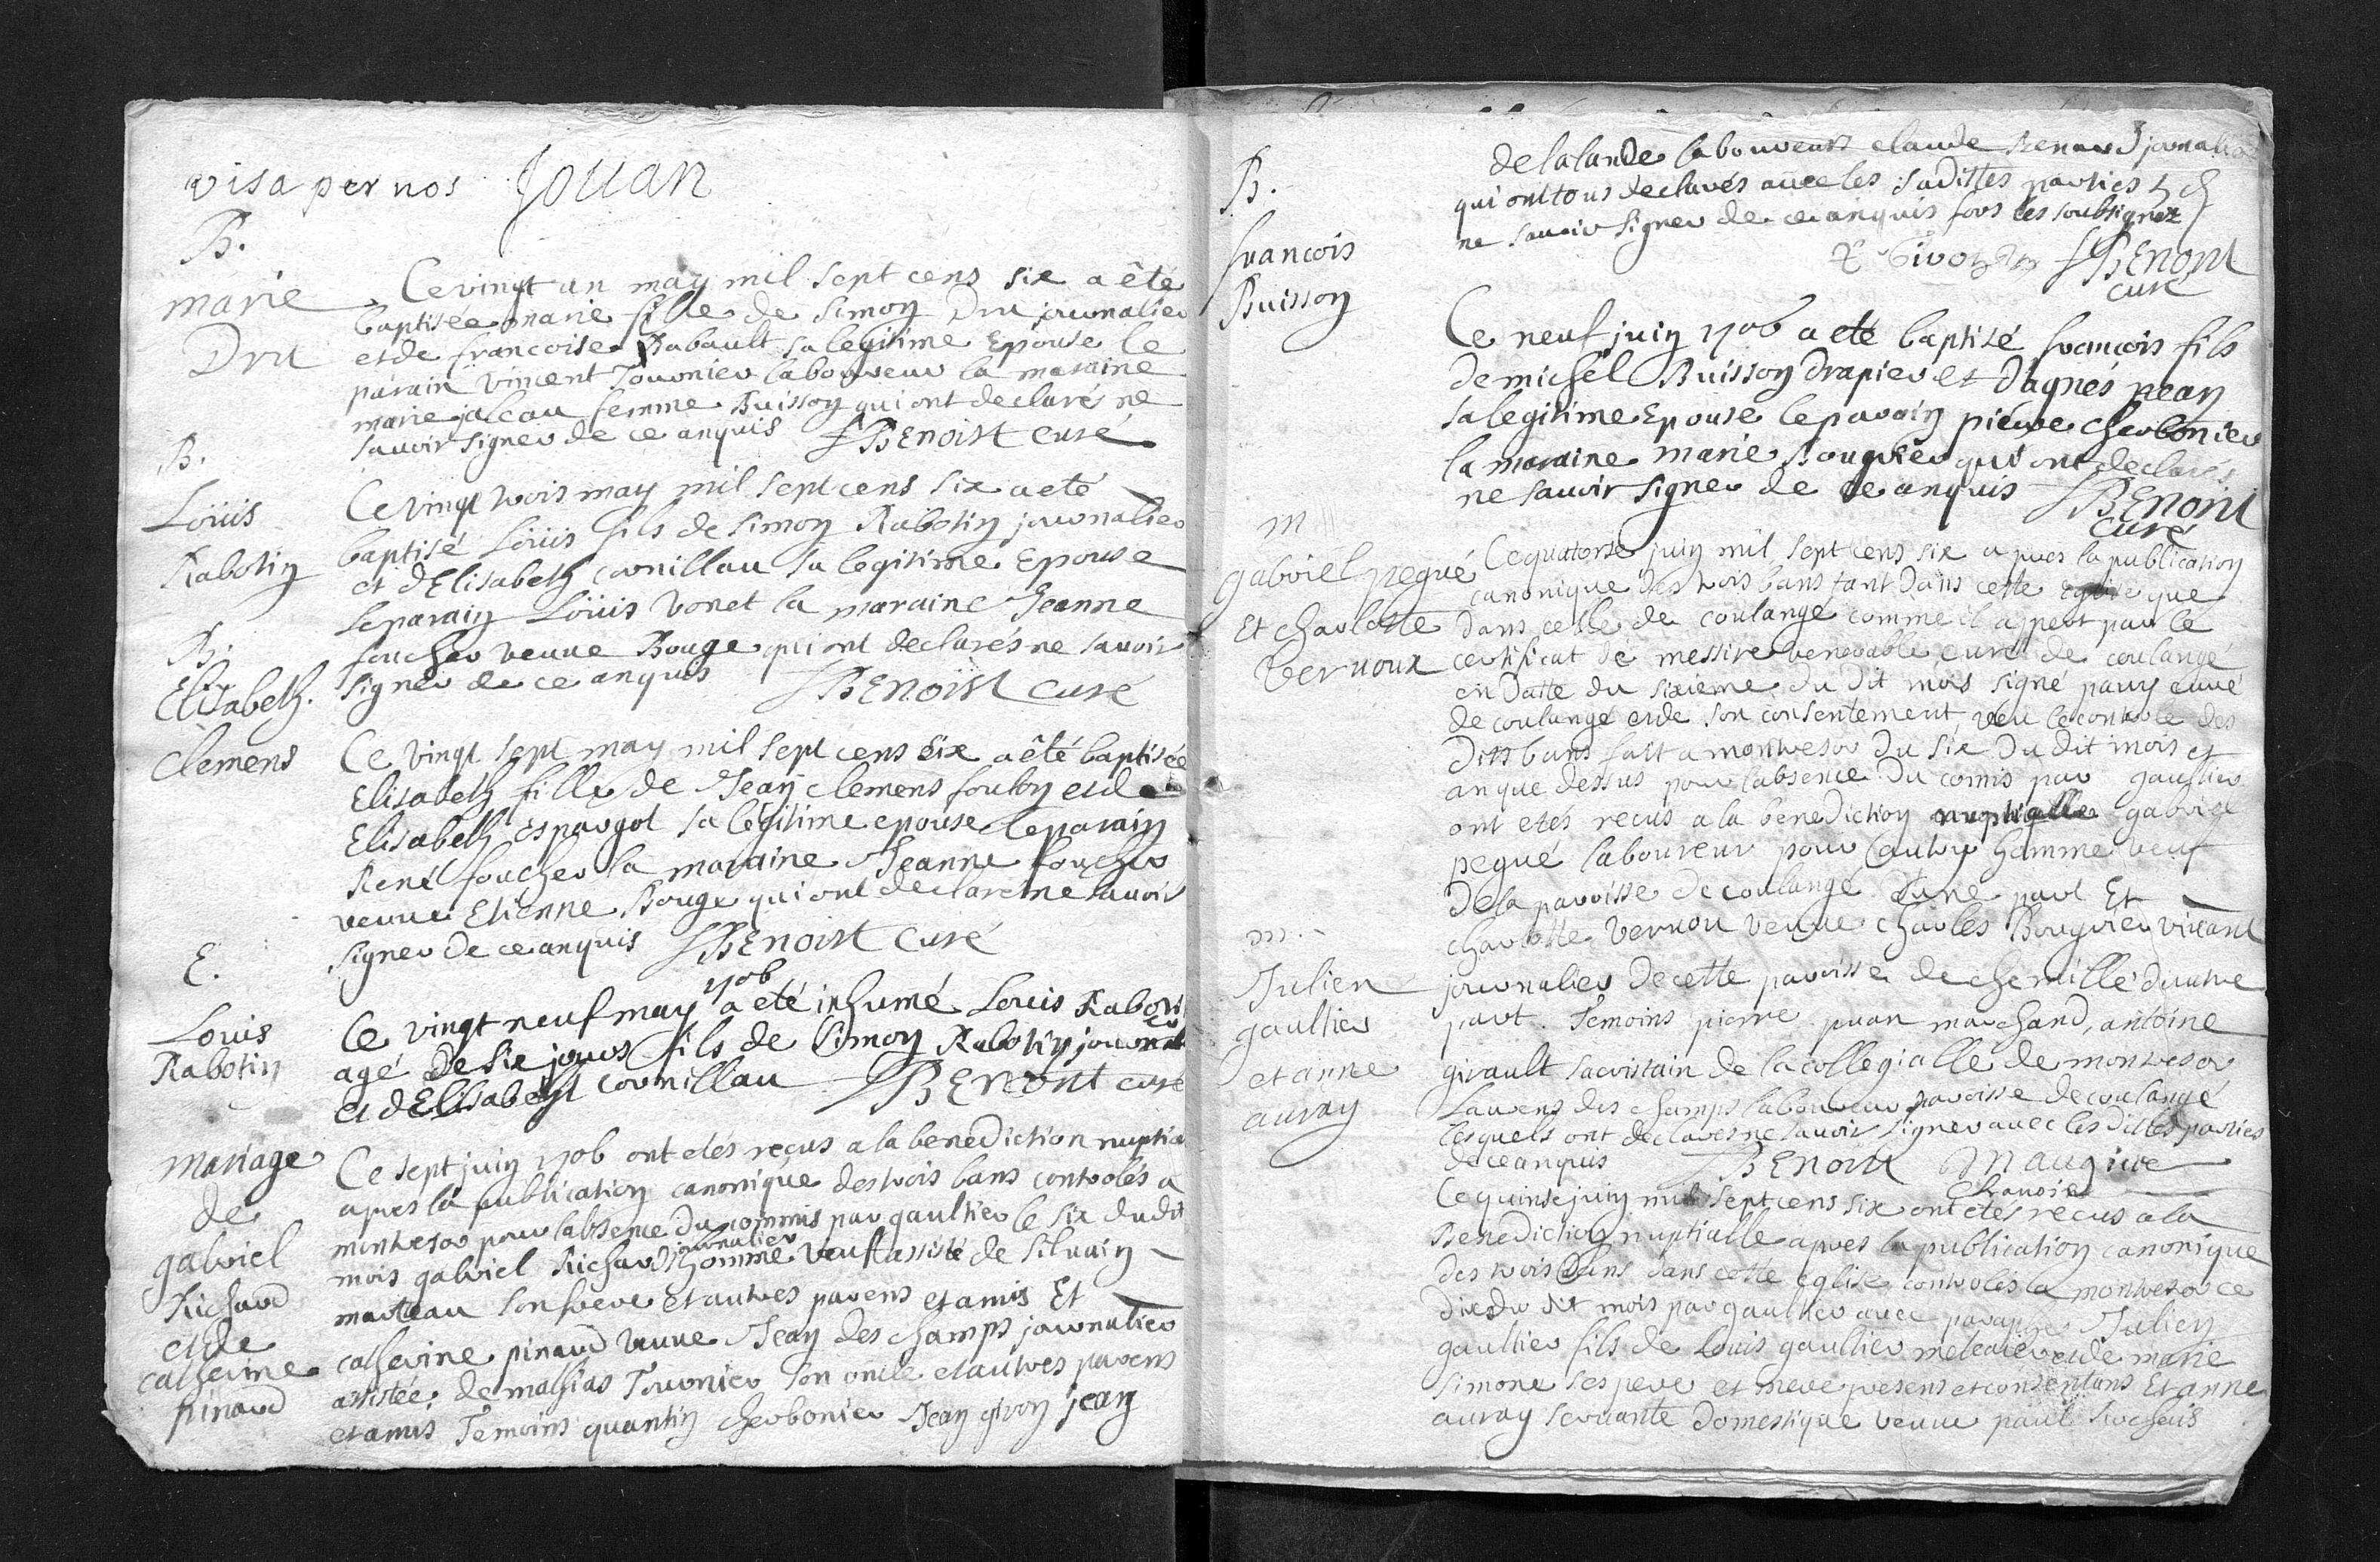 visa per nos Jouan
B.
marie
Dru
Ce vingt un may mil sept cens six a êté
baptisée marie fille de Simon Dru journalier
et de francoise Rabault sa legitime Epouse le
parain vincent Tournier laboureur la maraine
marie jaleau femme Buisson qui ont declaré ne
savoir signer de ce anquis J Benoist curé
B.
Loüis
Rabotin
Ce vingt trois may mil sept cens six a eté
baptisé Loüis fils de Simon Rabotin journalier
et d'Elisabeth cornillau sa legitime Epouse
le parain Loüis vonet la maraine Jeanne
foucher veuve Bouge qui ont declarés ne savoir
signer de ce anquis J Benoist curé
B.
Elisabeth.
Clemens
Ce vingt sept may mil sept cens six a êté baptisée
Elisabeth fille de Jean clemens foulon et de
Elisabeth espargot sa légitime epouse le parain
René foucher la maraine Jeanne foucher
veuve Etienne Bouge qui ont declaré ne savoir
signer de ce anquis J Benoist curé
E.
Louis
Rabotin
Ce vingt neuf may 1706 a eté inhumé Louis Rabotin
agé de six jours fils de Simon Rabotin journal
et d'Elisabeth cornillau J Benoist curé
mariage
de
gabriel
Richard
et de
catherine
pinard
Ce sept juin 1706 ont etés reçus a la benediction nuptia
apres la publication canonique des trois bans controlés a
montresor pour l'absence du commis par gaultier le six du dit
mois gabriel Richard journalier homme veuf assisté de silvain
marteau son frere et autres parens et amis Et
catherine pinard veuve Jean des champs journalier
assistée de mathias Tournier son oncle et autres parens
et amis Temoins quantin cherbonier Jean giron jean
de lalande laboureur claude Renard journalier
qui ont tous declarés avec les sudittes parties
ne savoir signer de ce anquis fors les soubsignez
J Benoist
curé
B.
francois
Buisson
Ce neuf juin 1706 a eté baptisé francois fils
de michel Buisson drapier et d'agnés pean
sa legitime Epouse le parain pierre cherbonier
la maraine marie Bougrier qui ont declarés
ne savoir signer de ce anquis J Benoist
curé
m
gabriel pegué
Et charlotte
vernoux
Ce quatorse juin mil sept cens six apres la publication
canonique des trois bans tant dans cette Eglise que
dans celle de coulangé comme il apert par le
certificat de messire venerable curé de coulangé
en datte du sixieme du dit mois signé curé
de coulangé et de son consentement veu le controle des
dits bans fait a montresor du six du dit mois et
an que dessus pour l'absence du comis par gaultier
ont etés recus a la benediction nuptialle gabriel
pegué laboureur homme veuf
de la paroisse de coulangé d'une part Et
charlotte vernou veuve charles Bougrier vivant
journalier de cette paroisse de chemillé d'autre
part. Temoins pierre marchand, antoine
girault sacristain de la collegialle de montresor
Laurens des champs laboureur paroisse de coulangé
lesquels ont declarés ne savoir signer avec les dittes parties
de ce anquis J Benoist Maugirre
m.
Julien
gaultier
et anne
auray
Ce quinse juin mil sept cens six ont etés recus a la
Benediction nuptialle apres la publication canonique
des trois bans dans cette eglise controlés a montresor ce
dix du dit mois par gaultier avec paraphe Julien
gaultier fils de Louis gaultier meteaier et de marie
simone ses pere et mere presens et consentans Et anne
auray servante domestique veuve paul